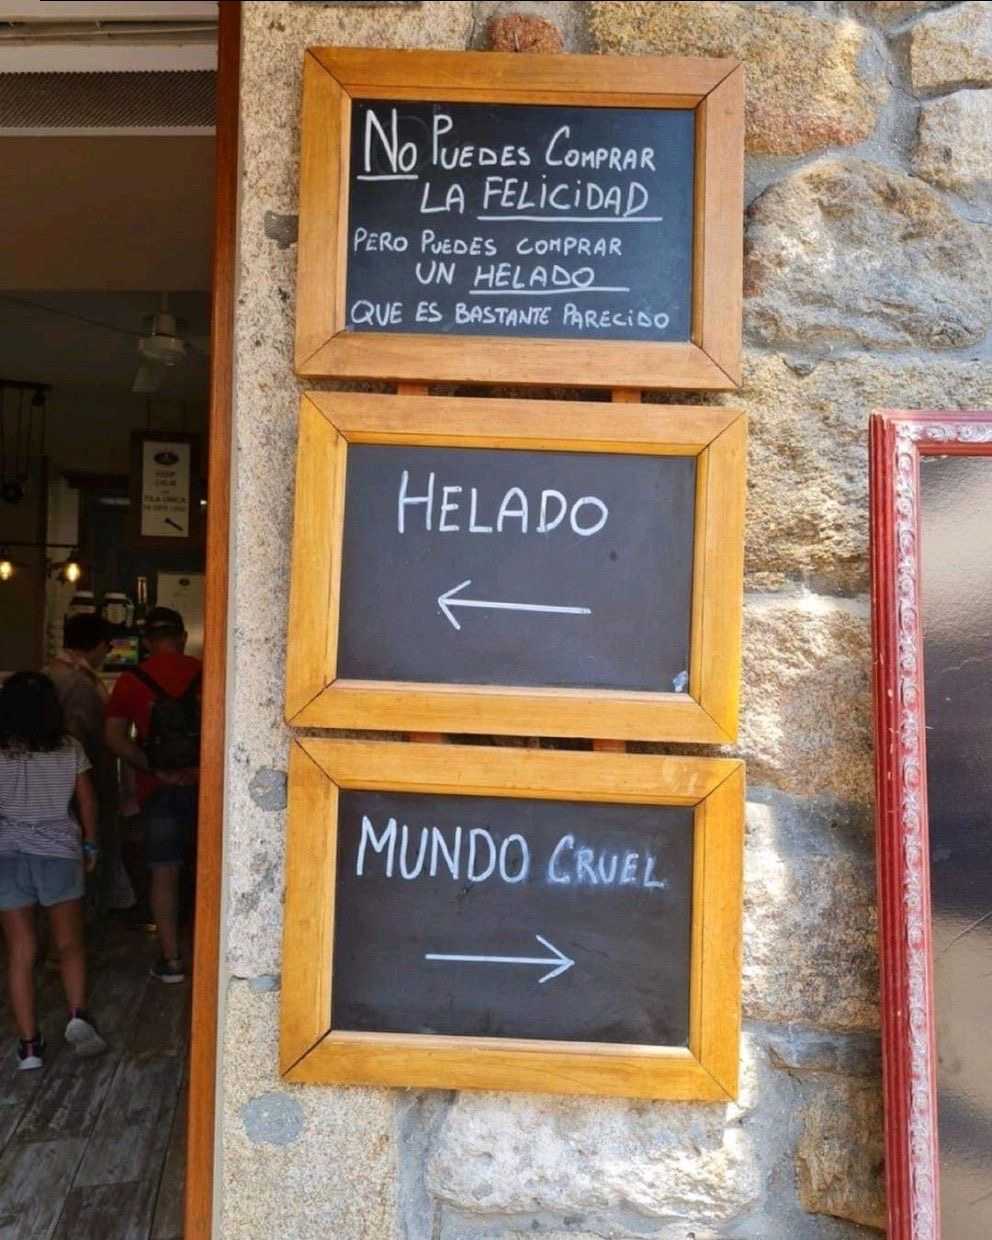 No Puedes Comprar
LA FELICIDAD
PERO PUEDES COMPRAR
UN HELADO
QUE ES BASTANTE PARECIDO
HELADO
MUNDO CRUEL
KEEP
CALM